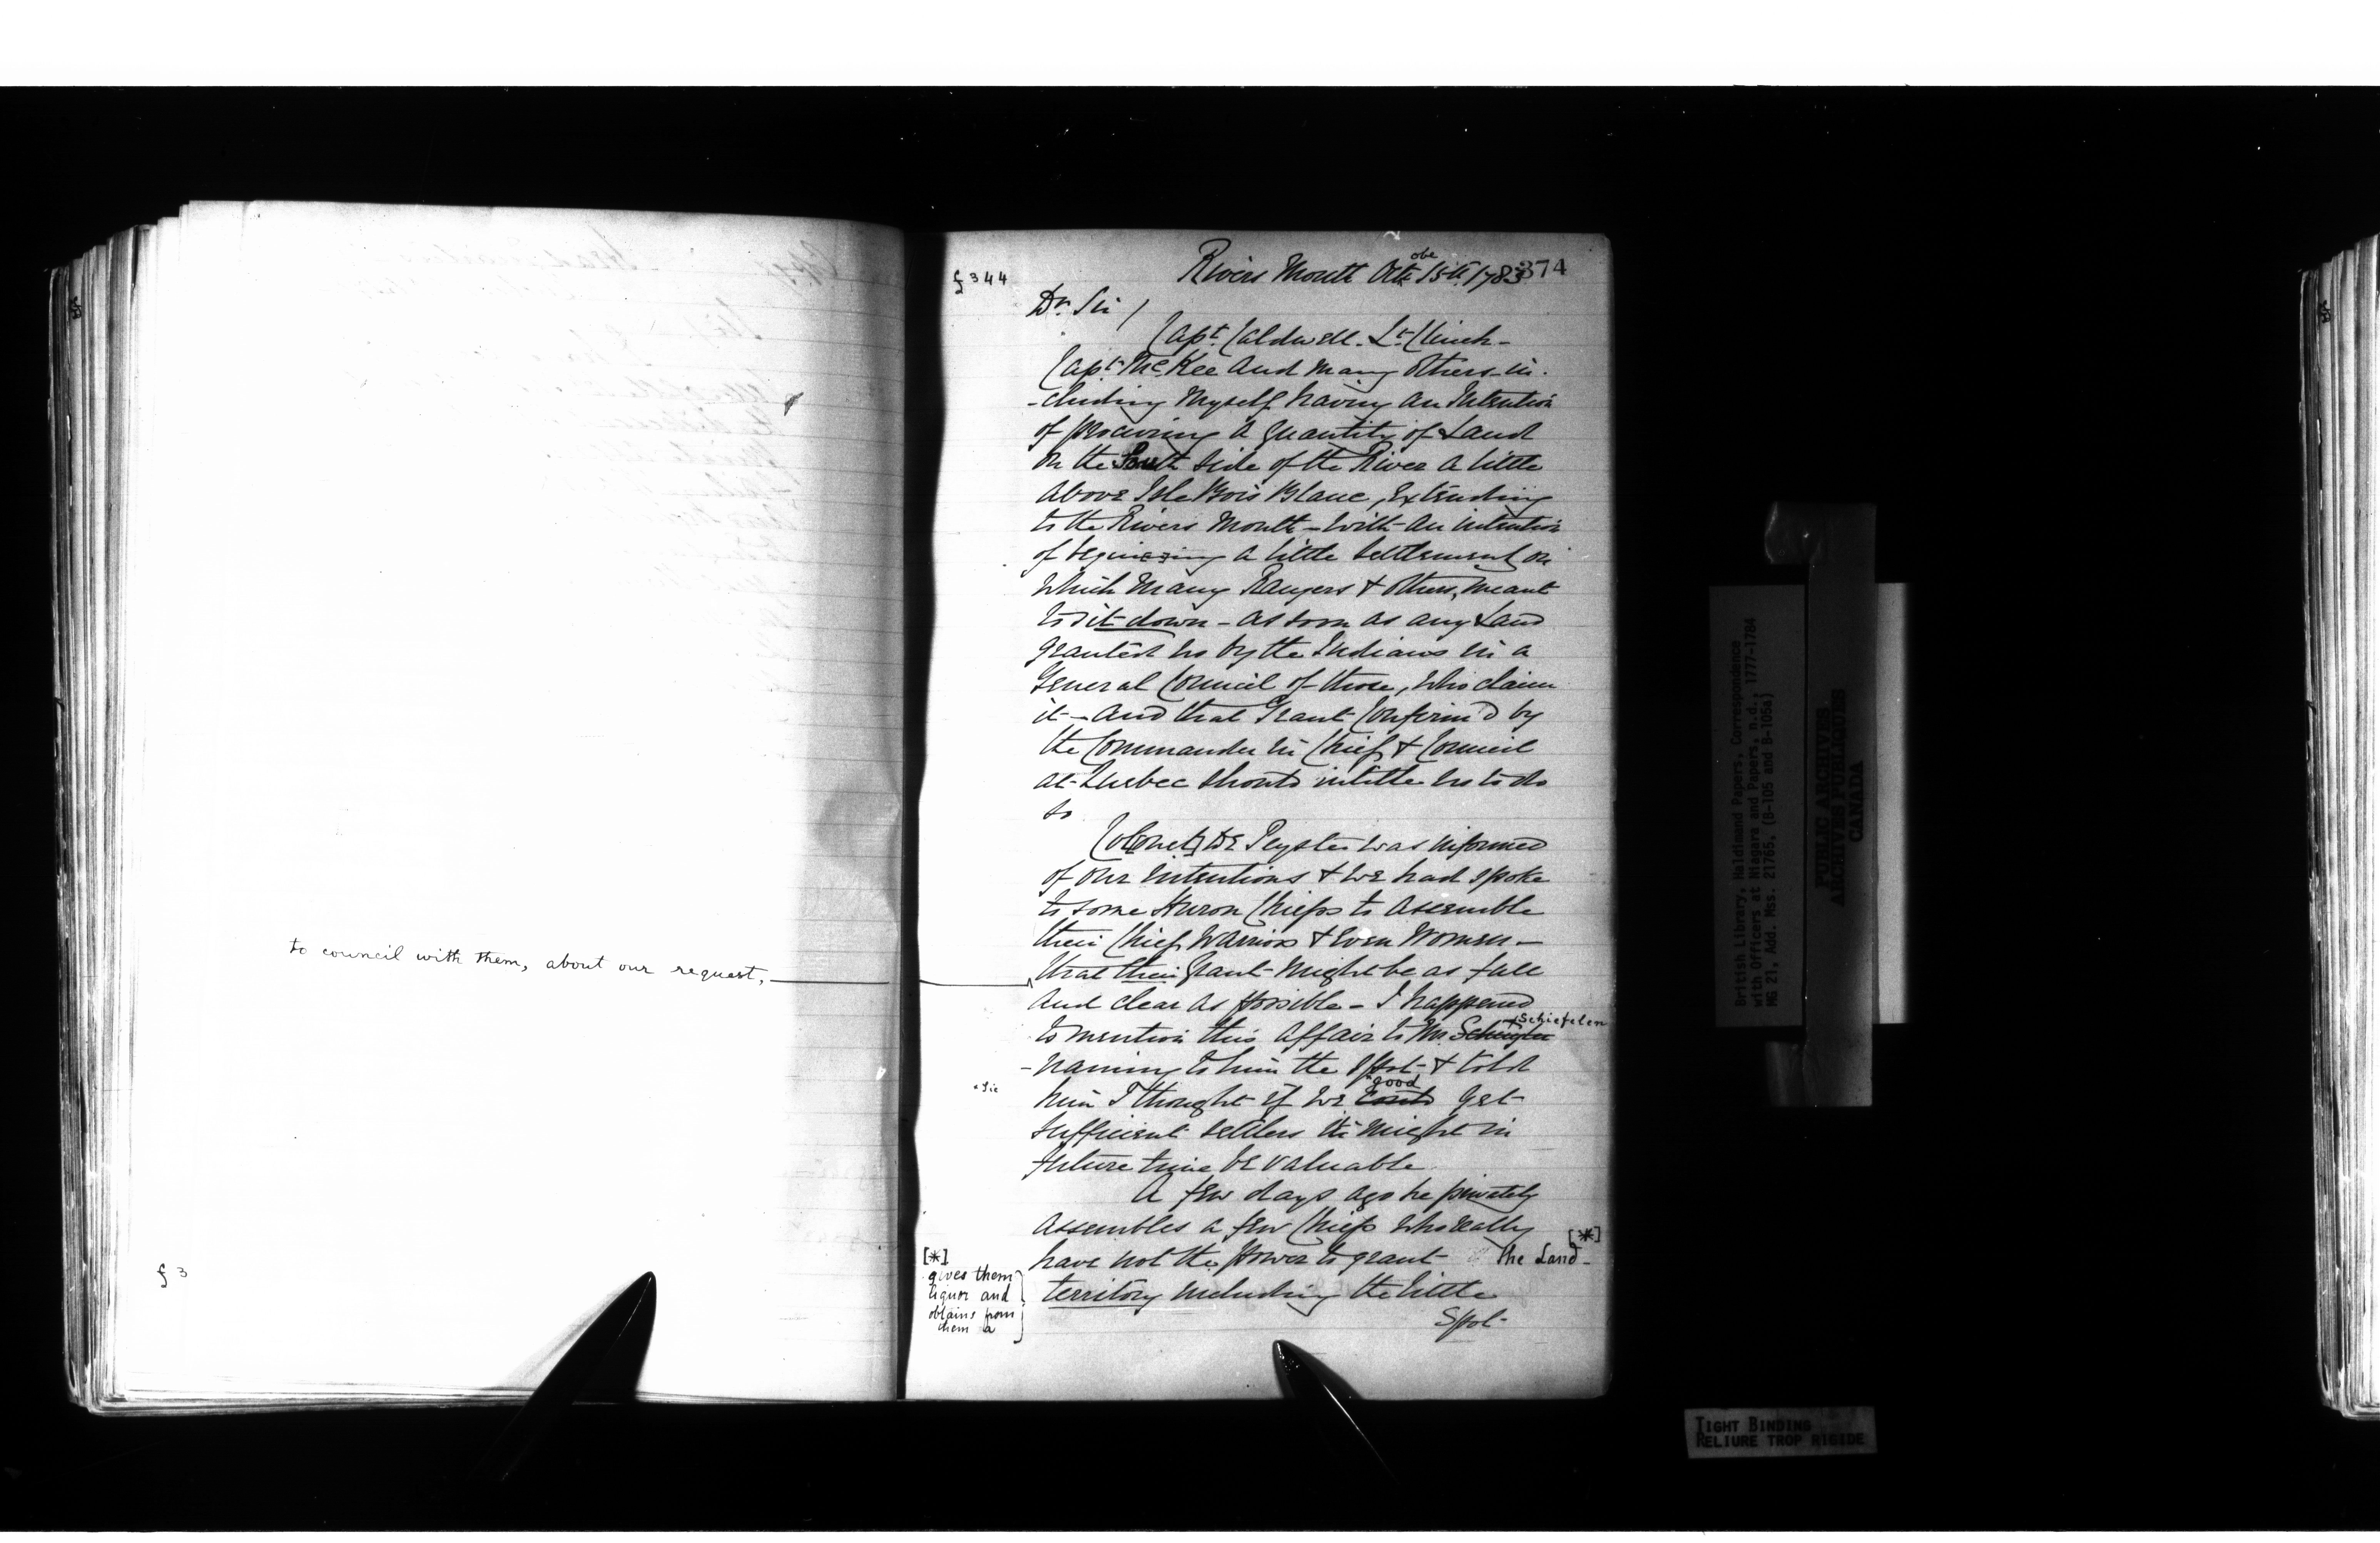 to council with them, about our request,
f 3
f 344
374
Rivers Mouth Octobe 15th. 1783
Dr. Sir /
Capt. Caldwell. Lt. Clinch-
Capt. McKee and many others in-
-cluding Myself having an Intention
of procuring a quantity of Land
on the South side of the River a little
above Isle Bois Blanc, extending
to the Rivers Mouth - with an intention
of begining a little settlement on
which many Rangers & others, meant
to sit down - as soon as any Land
granted us by the Indians in a
General Council of those, who claim
it - and that Grant Confirm'd by
the Commander in Chief & Council
at Quebec should intitle us to do
so
Col[onel] De Peyster was informed
of our intentions & we had spoke
to some Huron Chiefs to assemble
their Chief Warriors & even Women -
that their Grant might be as full
and clear as possible - I happened
Schiefelen
to mention this affair to Mr.
- naming to him the spot - & told
* Sic
* good
him I thought if we could get
sufficient settlers it might in
future time be valuable
A few days ago he privately
assembles a few Chiefs who really
[*]
have not the power to grant the Land -
[*]
gives them
liquor and
obtains from
them a
territory including the little
Spot-
British Library, Haldimand Papers, Correspondence
with Officers at Niagara and Papers, n.d., 1777-1784
MG 21, Add. Mss. 21765, (B-105 and B-105a)
PUBLIC ARCHIVES
ARCHIVES PUBLIQUES
CANADA
TIGHT BINDING
RELIURE TROP RIGIDE